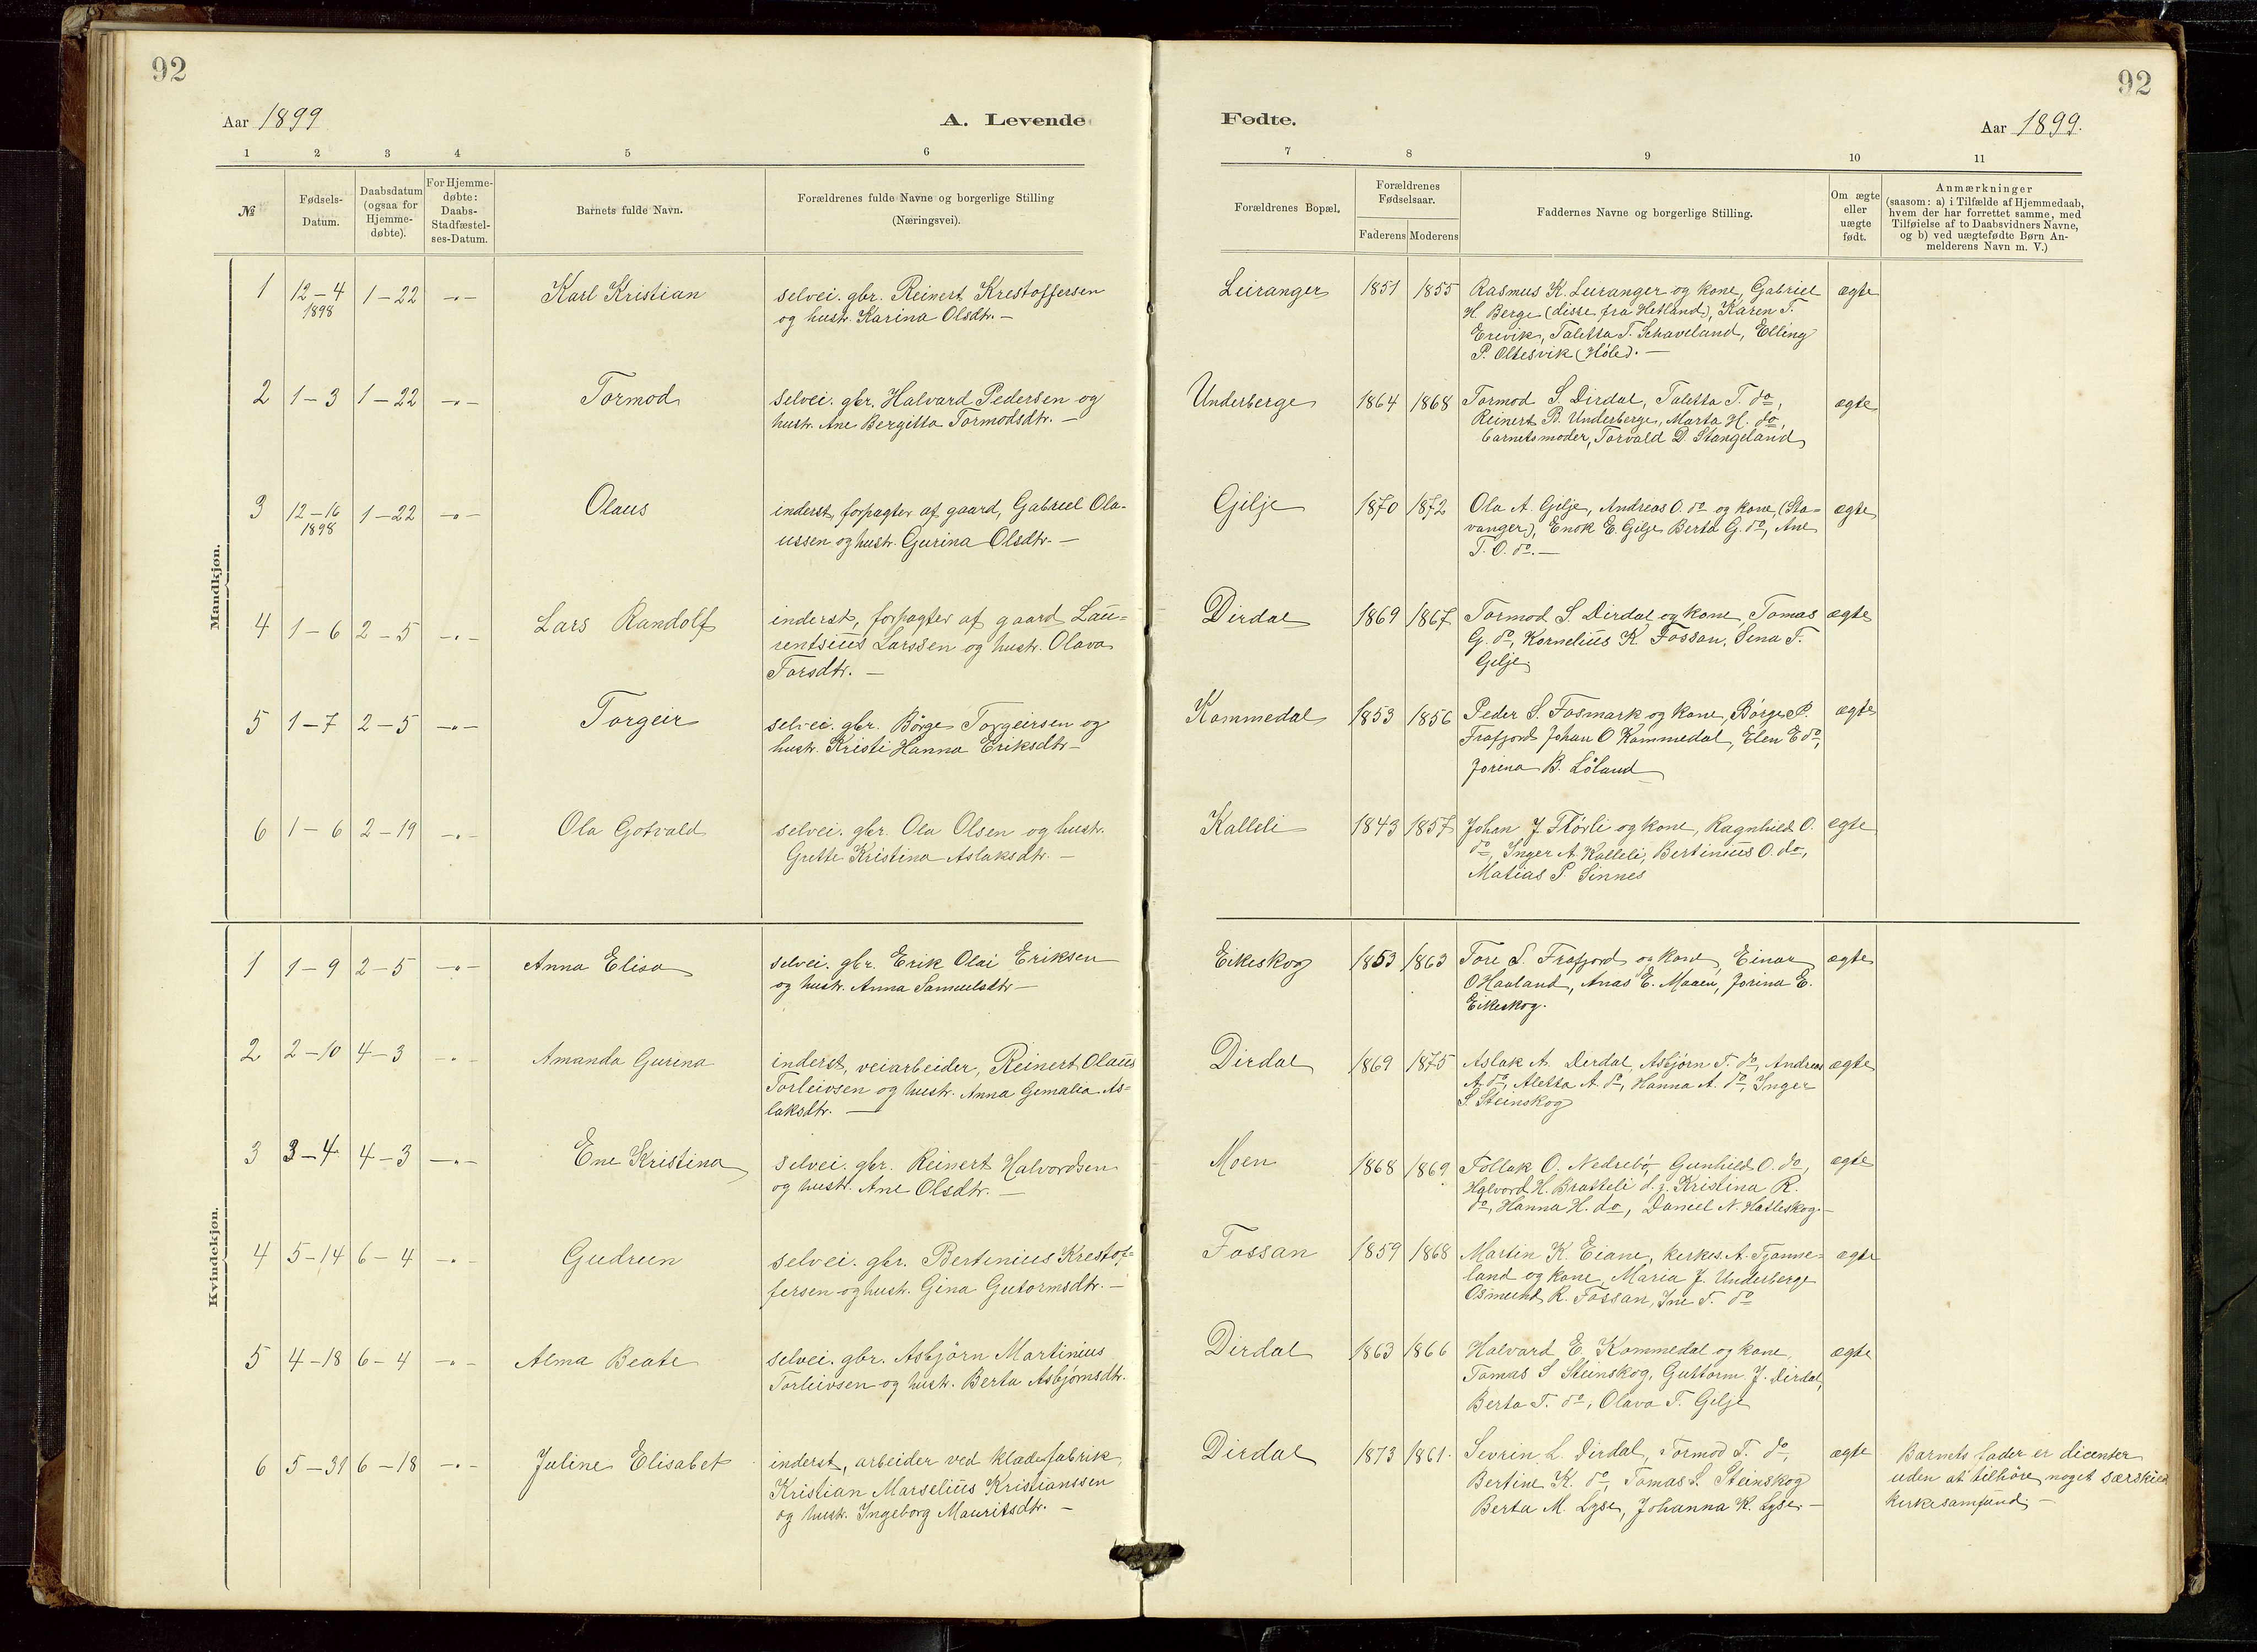 92
Aar 1899
A. Levende
1 2 3 4 5 6
№
Fødsels-
Datum.
Daabsdatum
(ogsaa for
Hjemme-
døbte).
For Hjemme-
døbte:
Daabs-
Stadfæstel-
ses-Datum.
Barnets fulde Navn.
Forældrenes fulde Navne og borgerlige Stilling
(Næringsvei).
Mandkjøn.
1 12-4 1-22 -"- Karl Kristian selvei. gbr. Reinert Krestoffersen
1898 og hustr. Karina Olsdtr. -
2 1-3 1-22 -"- Tormod selvei. gbr. Halvard Pedersen og
hustr. Ane Bergitta Tormodsdtr. -
3 12-16 1-22 -"- Olaus inderst, forpagter af gaard, Gabriel Ola-
1898 ussen og hustr. Gurina Olsdtr. -
4 1-6 2-5 -"- Lars Randolf inderst, forpagter af gaard Lau-
rentsius Larssen og hustr. Olava
Torsdtr. -
5 1-7 2-5 -"- Torgeir selvei. gbr. Börge Torgeirsen og
hustr. Kristi Hanna Eriksdtr -
6 1-6 2-19 -"- Ola Gotvald selvei. gbr. Ola Olsen og hustr.
Grette Kristina Aslaksdtr. -
Kvindekjøn.
1 1-9 2-5 -"- Anna Elisa selvei. gbr. Erik Olai Eriksen
og hustr. Anna Samuelsdtr -
2 2-10 4-3 -"- Amanda Gurina inderst, veiarbeider, Reinert Olaus
Torleivsen og hustr. Anna Gemalia As-
laksdtr. -
3 3-4 4-3 -"- Ene Kristina selvei. gbr. Reinert Halvordsen
og hustr. Ane Olsdtr. -
4 5-14 6-4 -"- Gudrun selvei. gbr. Bertinius Krestof-
fersen og hustr. Gina Gutormsdtr. -
5 4-18 6-4 -"- Alma Beate selvei. gbr. Asbjörn Martinius
Torleivsen og hustr. Berta Asbjörnsdtr.
6 5-31 6-18 -"- Juline Elisabet inderst, arbeider ved klædefabrik,
Kristian Marselius Kristianssen
og hustr. Ingeborg Mauritsdtr. -
92
Fødte.
Aar 1899.
7 8 9 10 11
Forældrenes Bopæl.
Forældrenes
Fødselsaar.
Faderens Moderens
Faddernes Navne og borgerlige Stilling.
Om ægte
eller
uægte
født.
Anmærkninger
(saasom: a) i Tilfælde af Hjemmedaab,
hvem der har forrettet samme, med
Tilføielse af to Daabsvidners Navne,
og b) ved uægtefødte Børn An-
melderens Navn m. V.)
Leiranger 1851 1855 Rasmus K. Leiranger og kone, Gabriel ægte
H. Berge (disse fra Hetland), Karen T.
Erevik, Taletta T. Schaveland, Elling
P. Oltesvik (Høle). -
Underberge 1864 1868 Tormod S. Dirdal, Taletta T. do, ægte
Reinert B. Underberge, Marta H. do,
barnetsmoder, Torvald D Stangeland
Gilje 1870 1872 Ola A. Gilje, Andreas O. do og kone, (Sta- ægte
vanger), Enok E. Gilje Berta G. do, Ane
T. O. do. -
Dirdal 1869 1867 Tormod S. Dirdal og kone, Tomas ægte
G. do, Kornelius K. Fossan, Sena T.
Gilje
Kommedal 1853 1856 Peder S. Fosmark og kone, Börge P. ægte
Frafjord Johan O Kommedal, Elen E do,
Jorina B. Löland
Kalleli 1843 1857 Johan J. Flörli og kone, Ragnhild O. ægte
do, Inger A. Kalleli, Bertinius O. do,
Matias P. Sinnes
Eikeskog 1853 1863 Tore S. Frafjord og kone, Einar ægte
O Haaland, Anas E. Maaen, Jorina E.
Eikeskog.
Dirdal 1869 1875 Aslak A. Dirdal, Asbjörn T. do, Andreas ægte
A. do, Aletta A. do, Hanna A. do, Inger
S. Steinskog
Moen 1868 1869 Tollak O. Nedrebö, Gunhild O. do, ægte
Halvord H. Bratteli d. y. Kristina R.
do, Hanna H. do, Daniel N. Hatleskog. -
Fossan 1859 1868 Martin K. Eiane, kirkes. A. Tjanne- ægte
land og kone, Maria J. Underberge
Osmund K. Fossan, Ine T. do
Dirdal 1863 1866 Halvard E. Kommedal og kone, ægte
Tomas S Steinskog, Guttorm J. Dirdal,
Berta T. do, Olava T. Gilje
Dirdal 1873 1861. Sevrin L. Dirdal, Tormod T. do, ægte Barnets fader er dicenter
Bertine K. do, Tomas S. Steinskog uden at tilhöre noget særskild
Berta M. Lyse, Johanna K. Lyse. - kirkesamfund. -